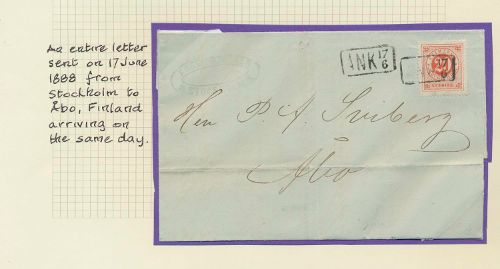 An entire letter
sent on 17 June
1888 from
Stockholm to
Åbo, Finland
arriving on
the same day.
ANK 17
6
17
6
Herr P. A. Sviberg
Åbo